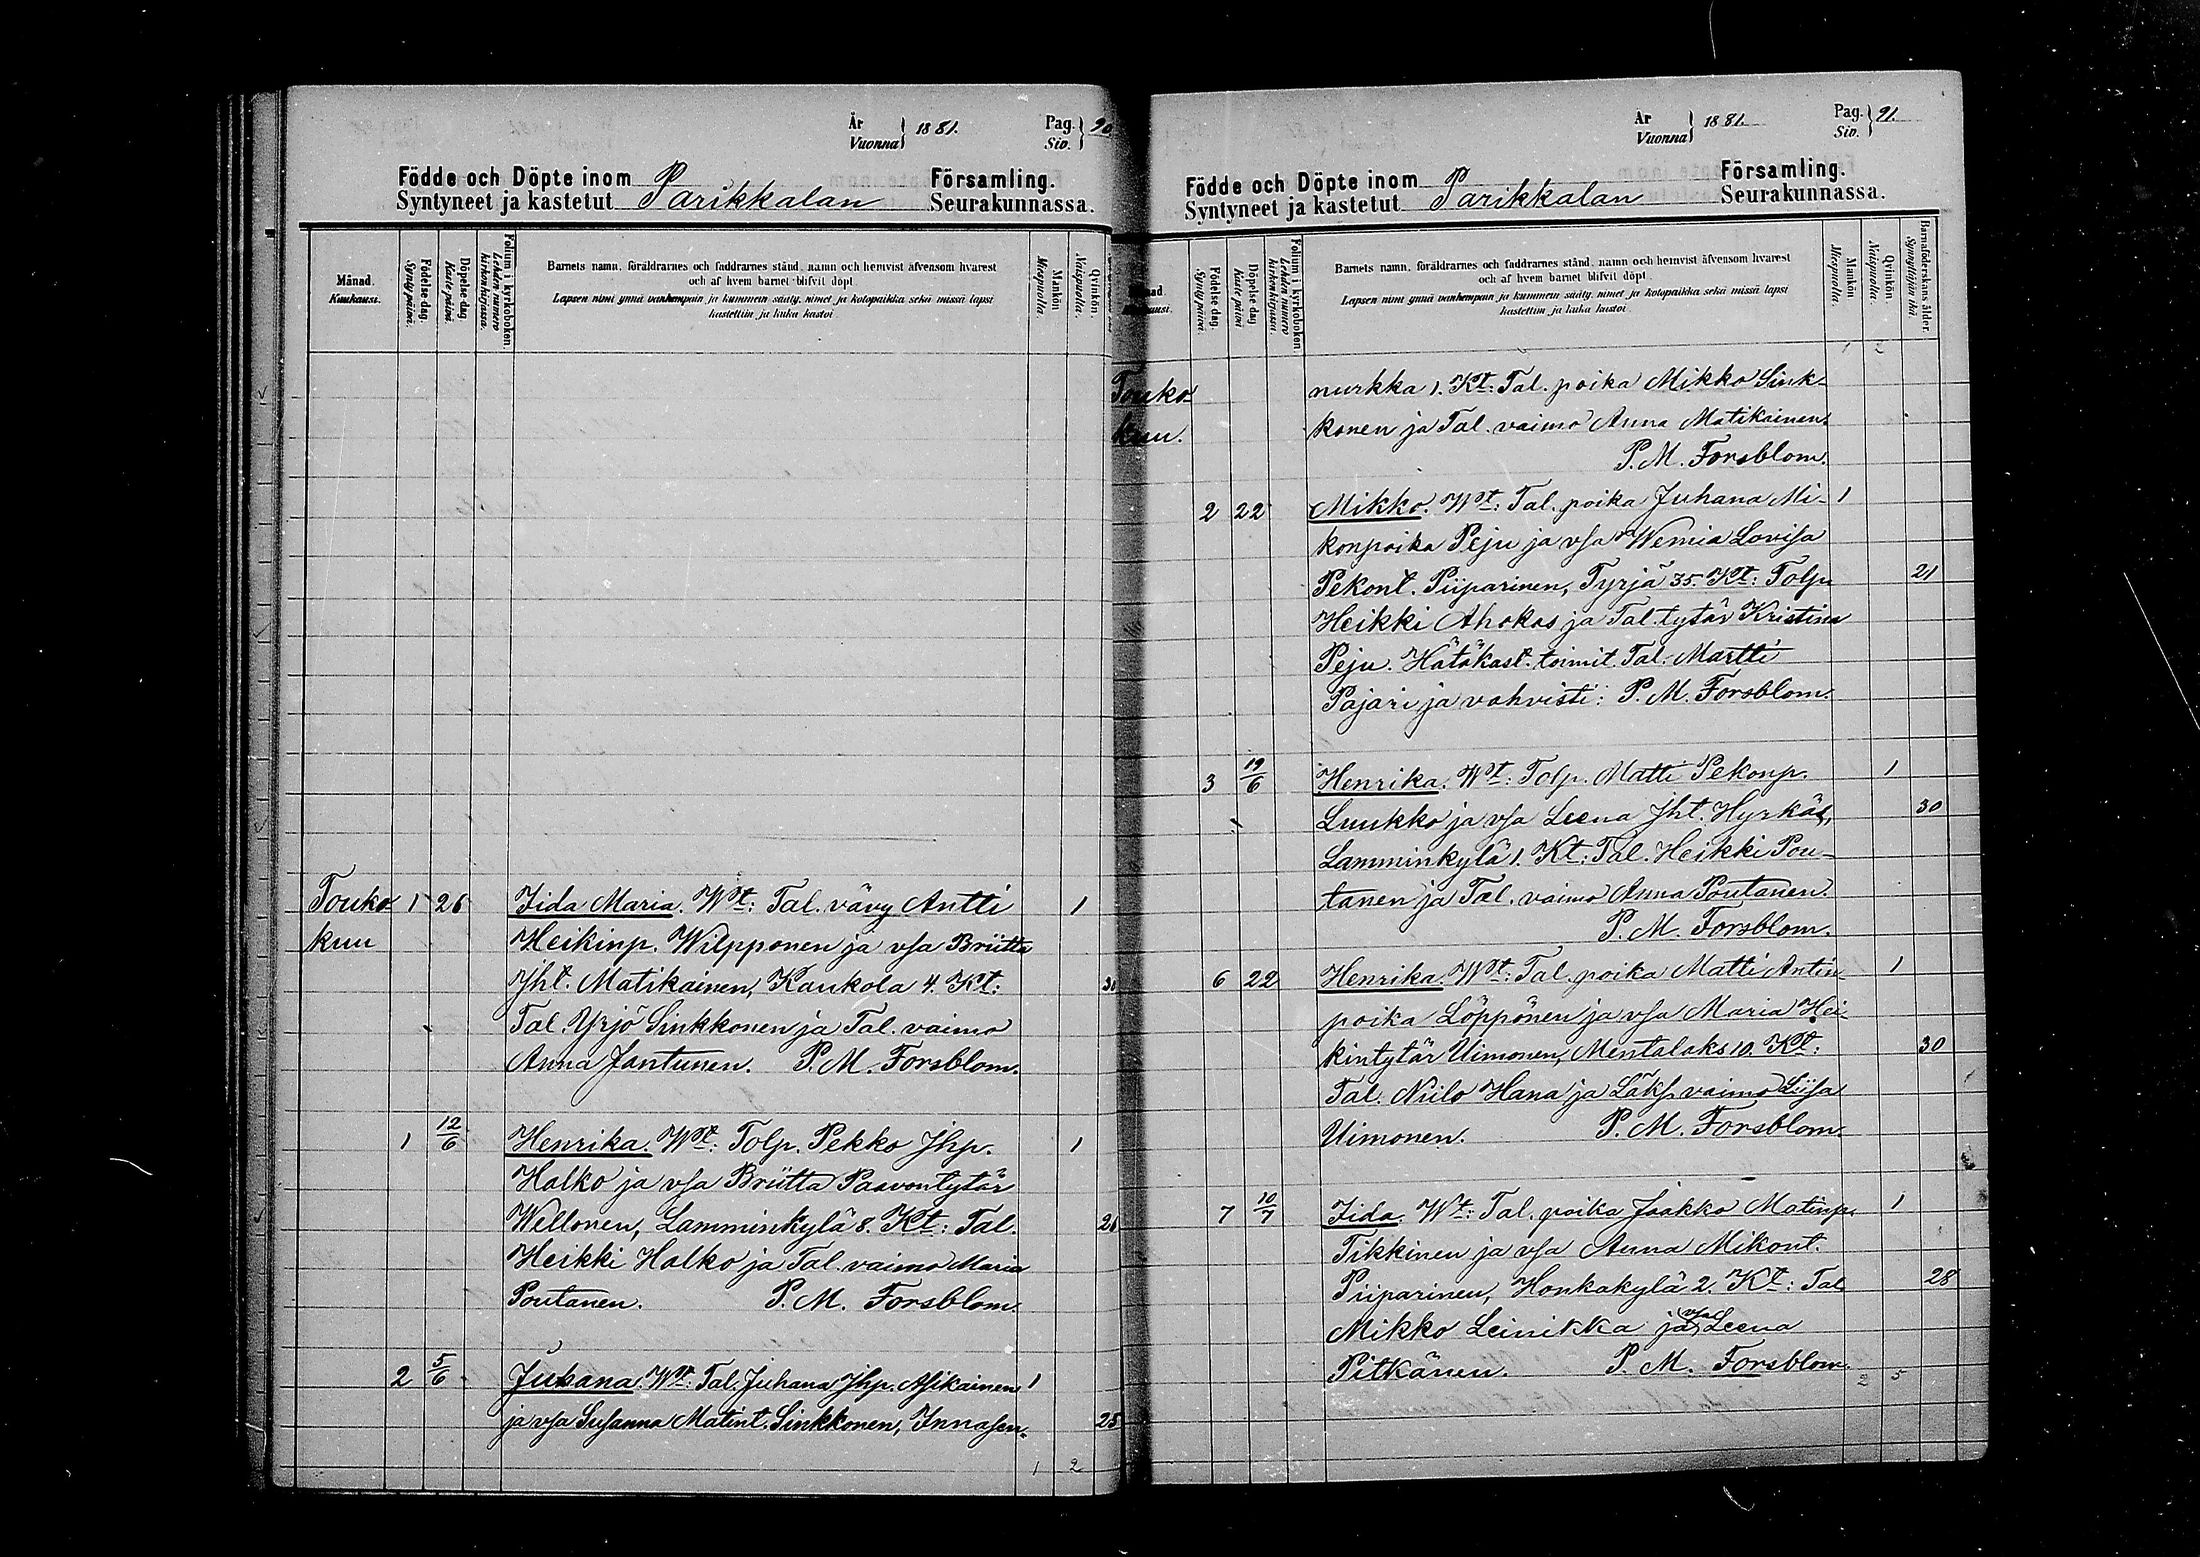 År
Vuonna } 1881.
Pag.
Siv. } 90
Födde och Döpte inom Parikkalan Församling.
Syntyneet ja kastetut Seurakunnassa.
Månad.
Kuukausi.
Födelse dag.
Synty päivä.
Döpelse dag
Kaste päivä
Folium i kyrkoboken.
Lehden numero kirkonkirjassa.
Barnets namn, föräldrarnes och faddrarnes stånd, namn och hemvist äfvensom hvarest
och af hvem barnet blifvit döpt.
Lapsen nimi ynnä vanhempain ja kummein sääty, nimet ja kotopaikka sekä missä lapsi
kastettiin ja kuka kastoi.
Mankön
Miespuolta.
Qvinkön.
Naispuolta.
Touko 1 26 Iida Maria. Wt: Tal. vävy Antti 1
kuu Heikinp. Wilpponen ja vsa Briitta
Jht. Matikainen, Kaukola 4. Kt: 30
Tal. Yrjö Sinkkonen ja Tal. vaimo
Anna Jantunen. P. M. Forsblom.
1 12/6 Henrika. Wt: Tolp. Pekko Jhp. 1
Halko ja vsa Briitta Paavontytär
Wellonen, Lamminkylä 8. Kt: Tal. 26
Heikki Halko ja Tal. vaimo Maria
Poutanen. P. M. Forsblom.
2 5/6 Juhana. Wt: Tal. Juhana Jhp. Asikainen 1
ja vsa Susanna Matint. Sinkkonen, Innasen- 25
1 2
År
Vuonna } 1881.
Pag.
Siv. } 91.
Födde och Döpte inom Parikkalan Församling.
Syntyneet ja kastetut Seurakunnassa.
Födelse dag.
Synty päivä.
Döpelse dag
Kaste päivä
Folium i kyrkoboken.
Lehden numero kirkonkirjassa.
Barnets namn, föräldrarnes och faddrarnes stånd, namn och hemvist äfvensom hvarest
och af hvem barnet blifvit döpt.
Lapsen nimi ynnä vanhempain ja kummein sääty, nimet ja kotopaikka sekä missä lapsi
kastettiin ja kuka kastoi.
Mankön
Miespuolta.
Qvinkön
Naispuolta.
Barnaföderskans ålder.
Synnyttäjän ikä.
1 2
Touko- nurkka 1. Kt: Tal. poika Mikko Sink-
kuu. konen ja Tal. vaimo Anna Matikainen.
P. M. Forsblom.
2 22 Mikko. Wt: Tal. poika Juhana Mi- 1
konpoika Peju ja vsa Wemia Lovisa
Pekont. Piiparinen, Tyrjä 35. Kt: Tolp. 21
Heikki Ahokas ja Tal. tytär Kristina
Peju. Hätäkast. toimit. Tal. Martti
Pajari ja vahvisti: P. M. Forsblom.
3 19/6 Henrika. Wt: Tolp. Matti Pekonp. 1
Luukko ja vsa Leena Jht. Hyrkäs, 30
Lamminkylä 1. Kt: Tal. Heikki Pou-
tanen ja Tal. vaimo Anna Poutanen.
P. M. Forsblom.
6 22 Henrika. Wt: Tal. poika Matti Antin- 1
poika Löppönen ja vsa Maria Hei-
kintytär Uimonen, Mentalaks 10. Kt: 30
Tal. Niilo Hana ja Läks. vaimo Liisa
Uimonen. P. M. Forsblom.
7 10/7 Iida. Wt: Tal. poika Jaakko Matinp. 1
Tikkinen ja vsa Anna Mikont.
Piiparinen, Honkakylä 2. Kt: Tal. 28
Mikko Leinikka ja vsa Leena
Pitkänen. P. M. Forsblom.
2 5